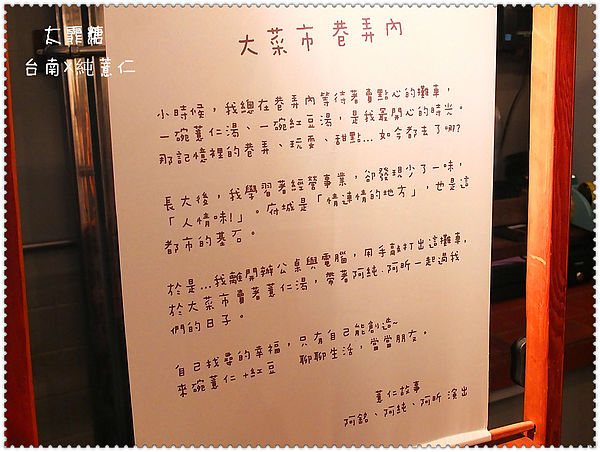 女罪糖
台南X純薏仁
大菜市巷弄內
小時候，我總在巷弄內等待著賣點心的攤車，
一碗薏仁湯、一碗紅豆湯，是我最開心的時光。
那記憶裡的巷弄、玩耍、甜點...如今都去了哪?
長大後，我學習著經營事業，卻發現少了一味，
「人情味!」。府城是「情連情的地方」，也是這
都市的基石。
於是...我離開辦公桌與電腦，用手敲打出這攤車，
於大菜市賣著薏仁湯，帶著阿純.阿昕一起過我
們的日子。
自己找尋的幸福，只有自己能創造~
來碗薏仁+紅豆　聊聊生活，當當朋友。
薏仁故事
阿銘、阿純、阿昕 演出